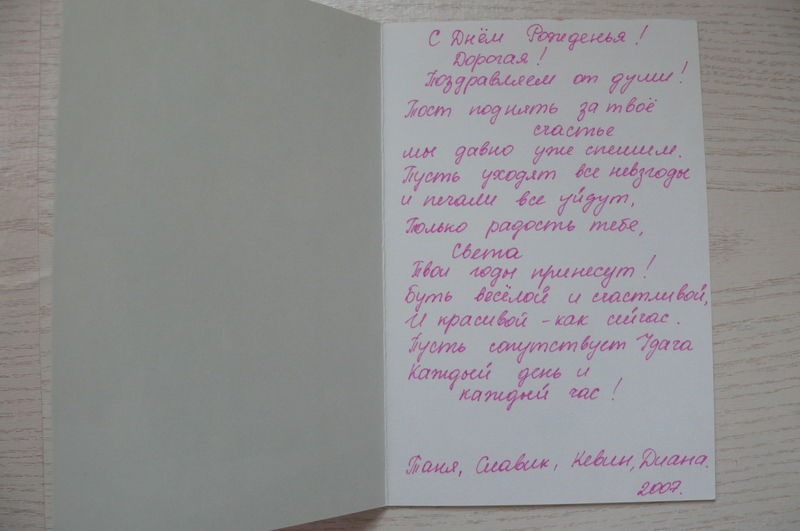 С Днём Рожденья!
Дорогая!
Поздравляем от души!
Тост поднять за твоё
счастье
мы давно уже спешим.
Пусть уходят все невзгоды
и печали все уйдут,
Только радость тебе,
Света
Твои годы принесут!
Будь весёлой и счастливой,
И красивой - как сейчас.
Пусть сопутствует Удача
Каждый день и
каждый час!
Таня, Славик, Кевин, Диана.
2007.